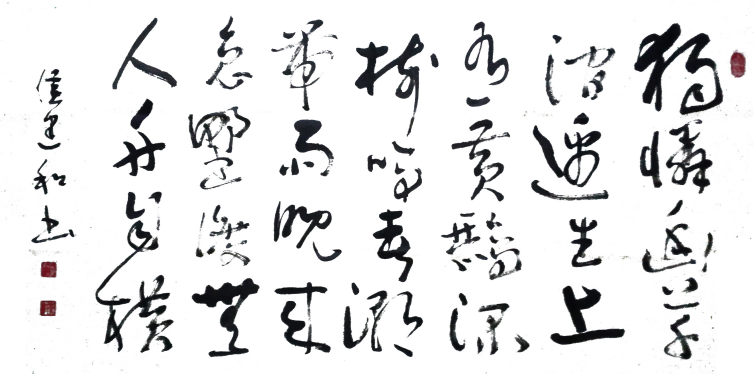 獨憐幽草
澗邊生上
有黃鸝深
樹鳴春潮
帶雨晚來
急野渡無
人舟自橫
侯和书